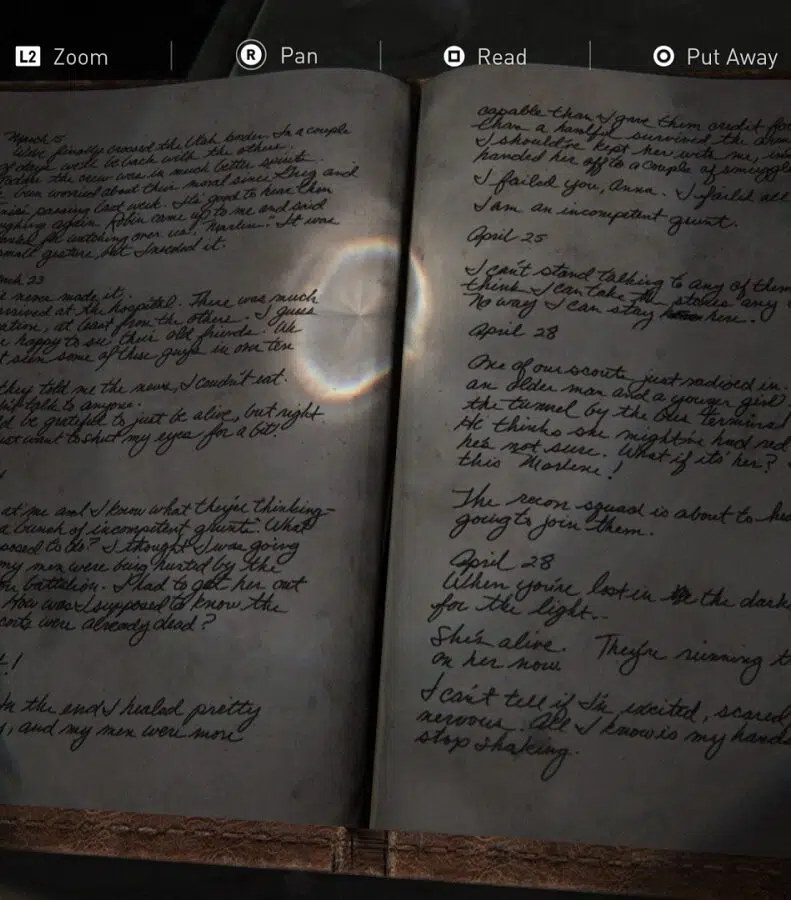 L2 Zoom
R Pan
Read
Put Away
March 15
We've finally crossed the Utah border. In a couple
of days we'll be back with the others.
the crew was in much better spirits.
been worried about their moral since Greg and
passing last week. It's good to hear them
again. Robin came up to me and said
for watching over us, Marlene." It was
small gesture, but I needed it.
23
made it.
arrived at the hospital. There was much
at least from the others. I guess
happy to see their old friends. We
seen some of these guys in over ten
they told me the news, I couldn't eat.
talk to anyone.
be grateful to just be alive, but right
just want to shut my eyes for a bit!
at me and I know what they're thinking-
a bunch of incompetent grunts. What
to do? I thought I was going
my men were being hunted by the
battalion. I had to get her out
How was I supposed to know the
were already dead?
In the end I healed pretty
and my men were more
capable than I gave them credit for
than a handful survived the
I should've kept her with me,
handed her off to a couple of
I failed you, Anna. I failed
I am an incompetent grunt.
April 25
I can't stand talking to any of them
think I can take the stares any
No way I can stay here.
April 28
One of our scouts just radioed in.
an older man and a younger girl
the tunnel by the bus terminal
He thinks she might've had red
he's not sure. What if it's her?
this Marlene!
The recon squad is about to
going to join them.
April 28
When you're lost in the
for the light..
She's alive. They're running
on her now
I can't tell if I'm excited, scared
nervous. All I know is my hands
stop shaking.